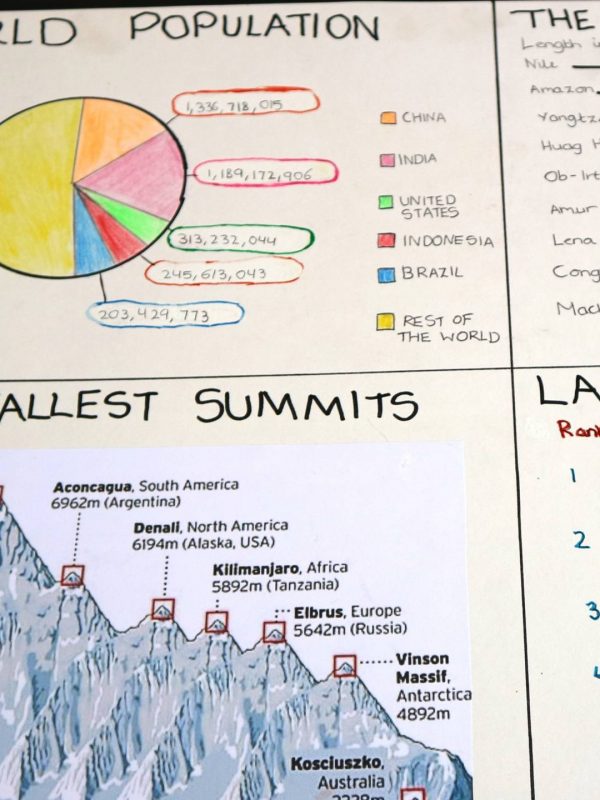 POPULATION
1,336,718,015
1,189,172,906
313,232,044
245,613,043
203,429,773
CHINA
INDIA
UNITED
STATES
INDONESIA
BRAZIL
REST OF
THE WORLD
THE
Length
Nile
Amazon
Huag
Amur
Lena
SUMMITS
Aconcagua, South America
6962m (Argentina)
Denali, North America
6194m (Alaska, USA)
Kilimanjaro, Africa
5892m (Tanzania)
Elbrus, Europe
5642m (Russia)
Vinson
Massif,
Antarctica
4892m
Kosciuszko,
Australia
1
2
3